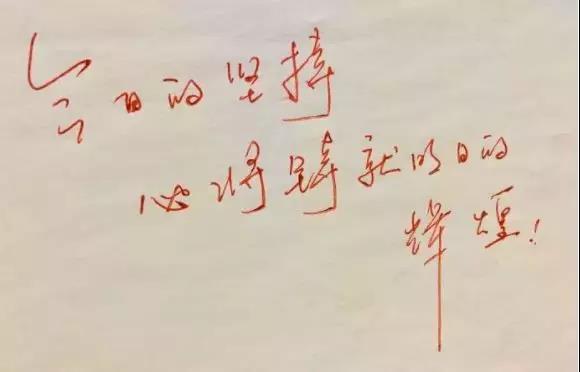 今日的坚持
必将铸就明日的
辉煌!